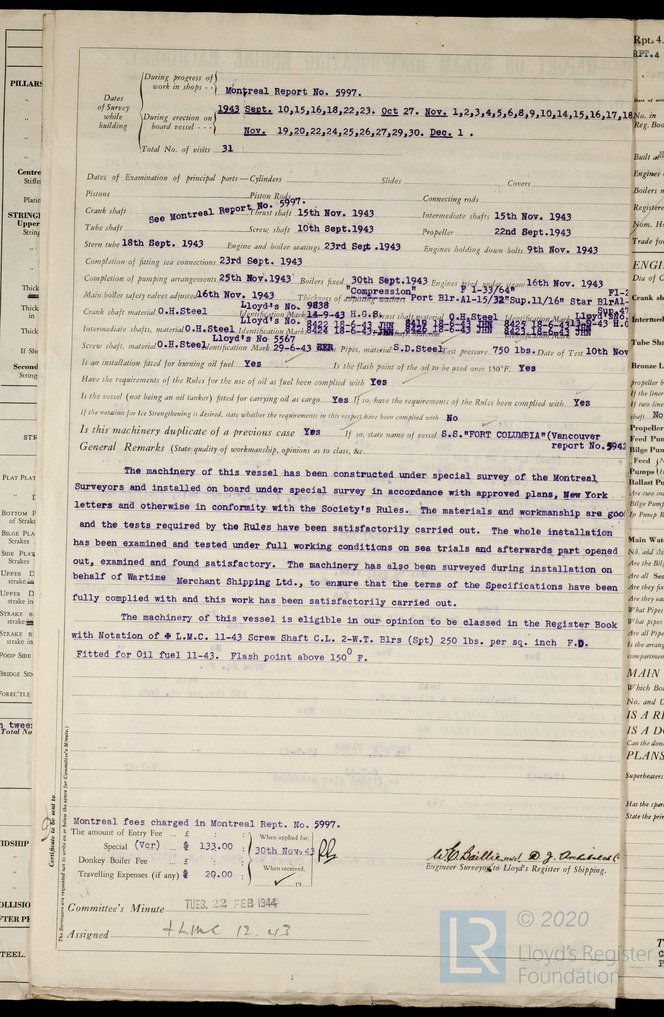 During progress of work in shops - - Montreal Report No. 5997.
Dates of Survey while building
During erection on board vessel - - - 1943 Sept. 10,15,16,18,22,23. Oct 27. Nov. 1,2,3,4,5,6,8,9,10,14,15,16,17,18
Nov. 19,20,22,24,25,26,27,29,30. Dec. 1 .
Total No. of visits 31
Dates of Examination of principal parts—Cylinders Slides Covers
Pistons Piston Rods Connecting rods
Crank shaft See Montreal Report No. 5997. Thrust shaft 15th Nov. 1943 Intermediate shafts 15th Nov. 1943
Tube shaft Screw shaft 10th Sept.1943 Propeller 22nd Sept.1943
Stern tube 18th Sept. 1943 Engine and boiler seatings 23rd Sept.1943 Engines holding down bolts 9th Nov. 1943
Completion of fitting sea connections 23rd Sept. 1943
Completion of pumping arrangements 25th Nov.1943 Boilers fixed 30th Sept.1943 Engines tried under steam 16th Nov. 1943
"Compression" F 1-33/64"
Main boiler safety valves adjusted 16th Nov. 1943 Thickness of adjusting washers Port Blr.Al-15/32"Sup.11/16" Star BlrAl-
Lloyd's No. 9838
Crank shaft material O.H.Steel Identification Mark 14-9-43 H.G.S. Thrust shaft material O.H.Steel Identification Mark
Lloyd's No.
Intermediate shafts, material O.H.Steel Identification Marks 8422 18-6-43 JHN
Lloyd's No 5567
Screw shaft, material O.H.Steel Identification Mark 29-6-43 Steam Pipes, material S.D.Steel Test pressure 750 lbs. Date of Test 10th Nov
Is an installation fitted for burning oil fuel Yes Is the flash point of the oil to be used over 150°F. Yes
Have the requirements of the Rules for the use of oil as fuel been complied with Yes
Is the vessel (not being an oil tanker) fitted for carrying oil as cargo Yes If so, have the requirements of the Rules been complied with Yes
If the notation for Ice Strengthening is desired, state whether the requirements in this respect have been complied with No
Is this machinery duplicate of a previous case Yes If so, state name of vessel S.S."FORT COLUMBIA"(Vancouver
report No.5942
General Remarks (State quality of workmanship, opinions as to class, &c.
The machinery of this vessel has been constructed under special survey of the Montreal
Surveyors and installed on board under special survey in accordance with approved plans, New York
letters and otherwise in conformity with the Society's Rules. The materials and workmanship are good
and the tests required by the Rules have been satisfactorily carried out. The whole installation
has been examined and tested under full working conditions on sea trials and afterwards part opened
out, examined and found satisfactory. The machinery has also been surveyed during installation on
behalf of Wartime Merchant Shipping Ltd., to ensure that the terms of the Specifications have been
fully complied with and this work has been satisfactorily carried out.
The machinery of this vessel is eligible in our opinion to be classed in the Register Book
with Notation of ✠ L.M.C. 11-43 Screw Shaft C.L. 2-W.T. Blrs (Spt) 250 lbs. per sq. inch F.D.
Fitted for Oil fuel 11-43. Flash point above 150° F.
Certificate to be sent to
The Surveyors are requested not to write on or below the space for Committee's Minute.
Montreal fees charged in Montreal Rept. No. 5997.
The amount of Entry Fee .. £ : : When applied for,
Special (Vcr) $ 133.00 : 30th Nov. 43
Donkey Boiler Fee £ : : When received,
Travelling Expenses (if any) $ 20.00 : 19
Engineer Surveyor to Lloyd's Register of Shipping.
Committee's Minute TUES. 22 FEB 1944
Assigned + LMC 12.43
© 2020
LR
Lloyd's Register
Foundation